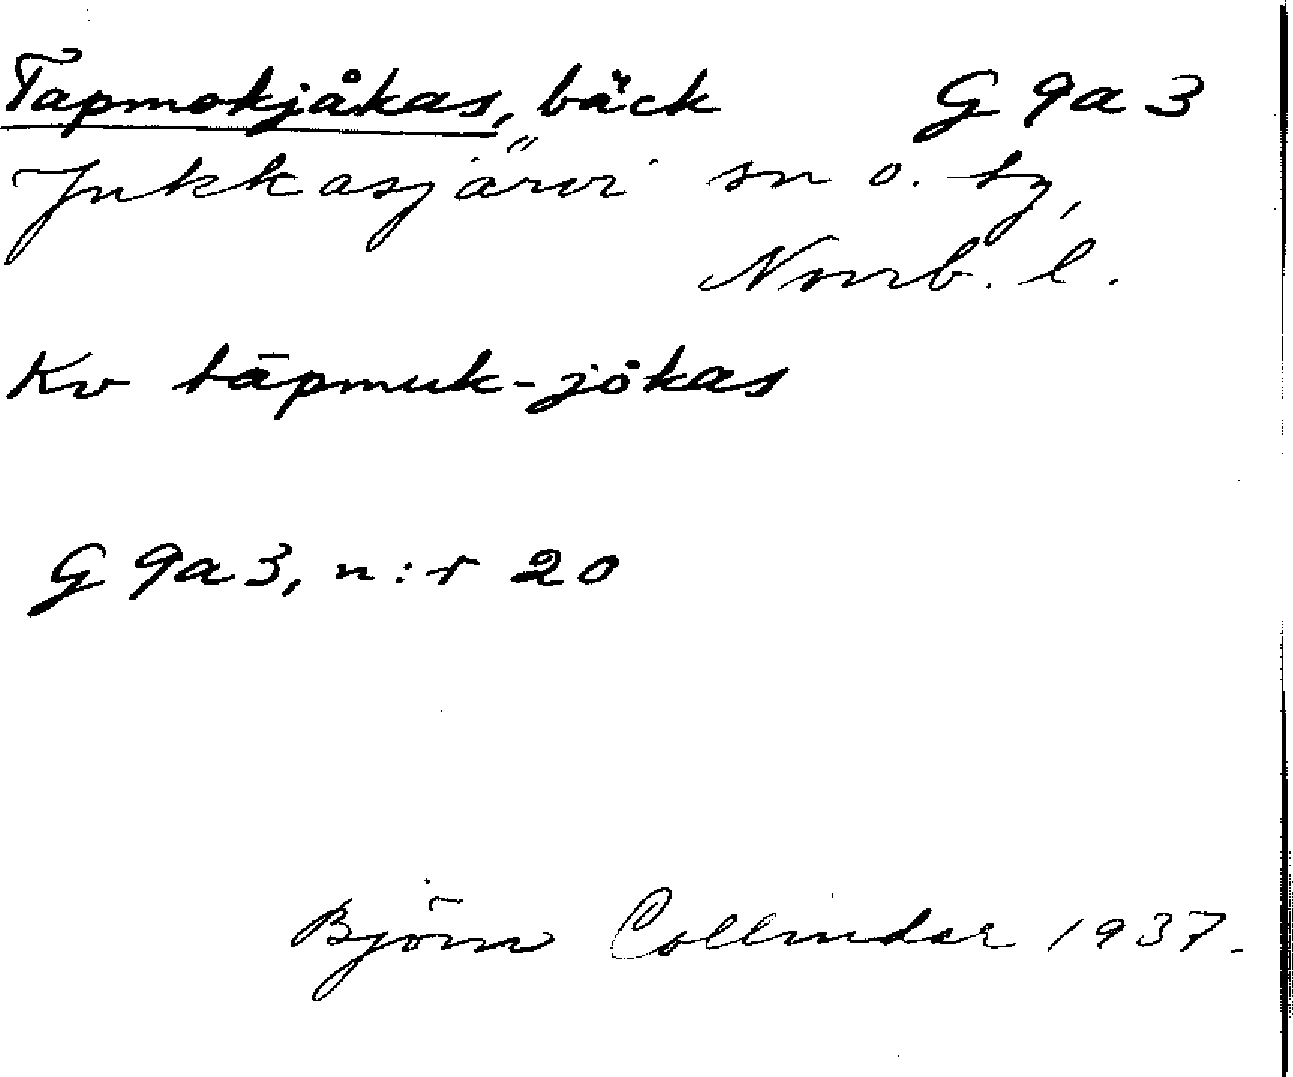 Tapmokjåkas, bäck G 9a 3
Jukkasjärvi sn o. by,
Norrb. l.
Kv tāpmuk-jökas
G 9a 3, n:r 20
Björn Collinder 1937.